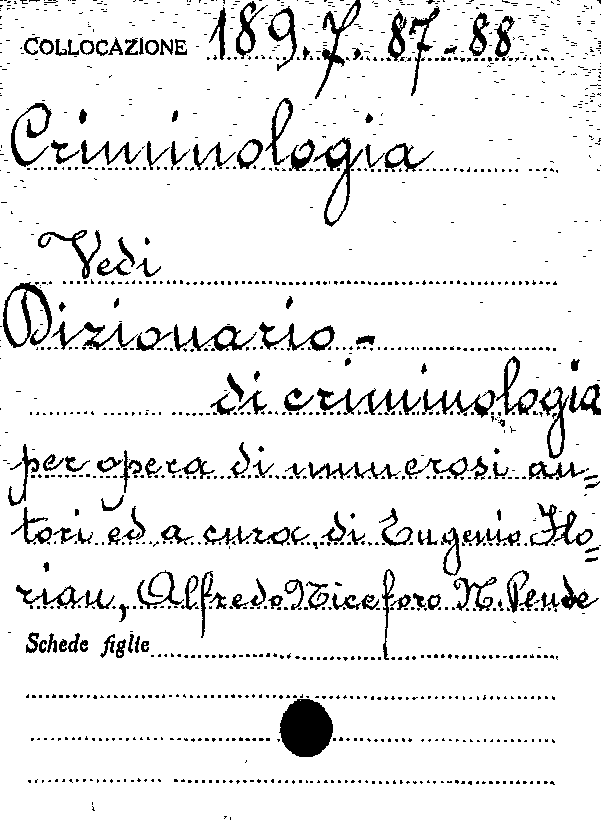 COLLOCAZIONE 189.7.87-88
Criminologia
Vedi
Dizionario -
di criminologia
per opera di numerosi au=
tori ed a cura di Eugenio Flo=
rian, Alfredo Niceforo N. Pende
Schede figlie